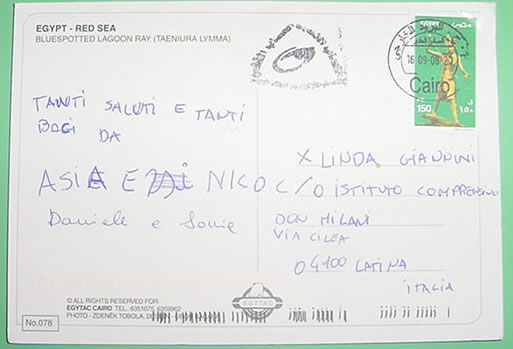 EGYPT - RED SEA
BLUESPOTTED LAGOON RAY (TAENIURA LYMMA)
EGYPT
16-09-08
Cairo
150
TANTI SALUTI E TANTI
BACI DA
ASIA E NICO
Daniele e Sonia
X LINDA GIANNINI
C/O ISTITUTO COMPRENSIVO
DON MILANI
VIA CILEA
04100 LATINA
ITALIA
© ALL RIGHTS RESERVED FOR
EGYTAC CAIRO TEL.: 6351075, 6359962
PHOTO - ZDENĚK TOBOLA,
EGYTAC
No.078